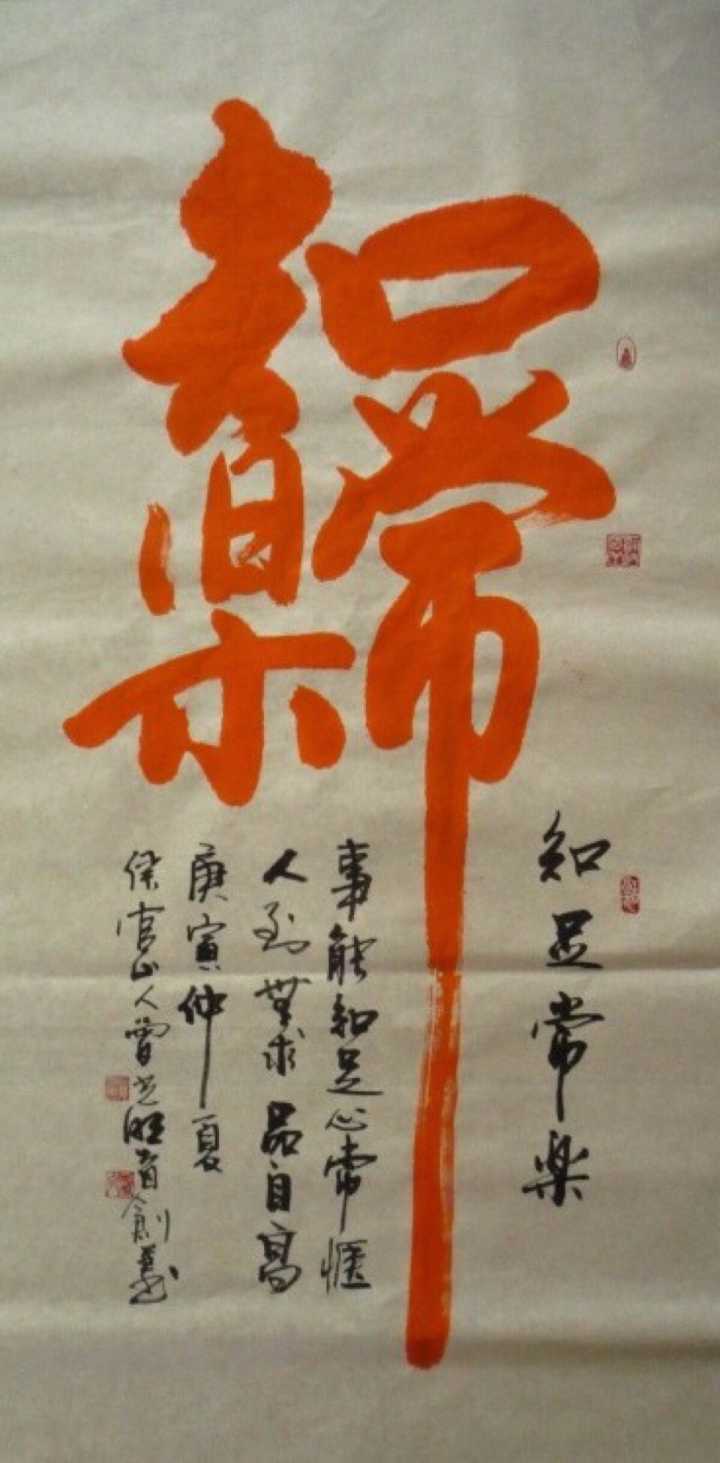 知足常樂
知足常樂
事能知足心常愜
人到無求品自高
庚寅仲夏
官山人曾旺首創